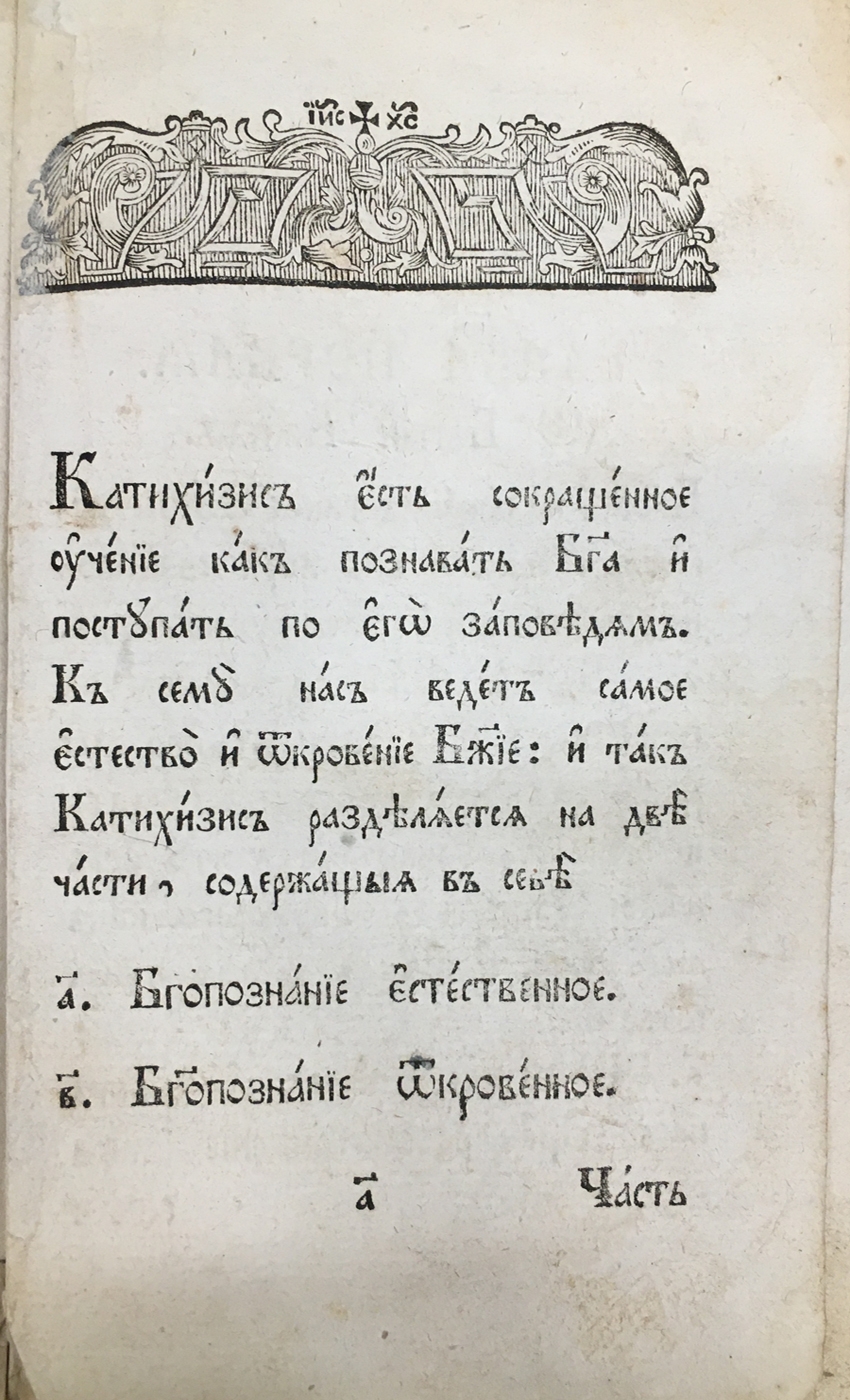 І҆И҃С ХС҃
Катихи́зисъ є҆́сть сокраще́нное
оу҆че́нїе ка́къ познава́ть Бг҃а и҆
постꙋпа́ть по є҆гѡ̀ за́повѣдѧмъ.
Къ семꙋ̀ на́съ веде́тъ са́мое
є҆стество̀ и҆ ѿкрове́нїе Бж҃їе: и҆ та́къ
Катихи́зисъ раздѣлѧ́етсѧ на двѣ̑
ча́сти, содержа́щыѧ въ себѣ̑
а҃. Бг҃опозна́нїе є҆сте́ственное.
в҃. Бг҃опозна́нїе ѿкрове́нное.
а҃ Ча́сть